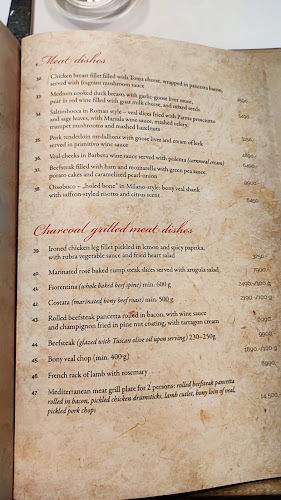 Meat dishes
32. Chicken breast fillet filled with Toma cheese, wrapped in pancetta bacon,
served with forest mushroom sauce
33. Medium cooked duck breasts with garlic-goose liver sauce,
pear in red wine filled with goat milk cheese, and salted seeds
34. Saltimbocca in Roman style – veal slices fried with Parma prosciutto
and sage leaves, with Marsala wine sauce, mashed celery,
trumpet mushrooms and mashed hazelnuts
35. Pork tenderloin medallions with goose liver and cream of leek
served in primitivo wine sauce
36. Veal cheeks in Barbera wine sauce served with polenta (cornmeal cream)
37. Beefsteak filled with ham and mozzarella with green pea sauce,
potato cakes and caramelized pearl-onions
38. Ossobuco – „holed bone" in Milano-style: bony veal shank
with saffron-styled risotto and citrus scent
9900
6450
Charcoal grilled meat dishes
39. Ironed chicken leg fillet pickled in lemon and spicy paprika,
with rubra vegetable sauce and fried heart salad
40. Marinated rosé baked rump steak slices served with arugula salad
7990
41. Fiorentina (whole baked beef spine) min. 600 g
42. Costata (marinated bony beef roast) min. 500 g
43. Rolled beefsteak pancetta rolled in bacon, with wine sauce
and champignon fried in pine nut coating, with tarragon cream
44. Beefsteak (glazed with Tuscan olive oil upon serving) 230–250g
45. Bony veal chop (min. 400 g)
46. French rack of lamb with rosemary
47. Mediterranean meat grill plate for 2 persons: rolled beefsteak pancetta
rolled in bacon, pickled chicken drumsticks, lamb cutlet, bony loin of veal,
pickled pork chops
14.500